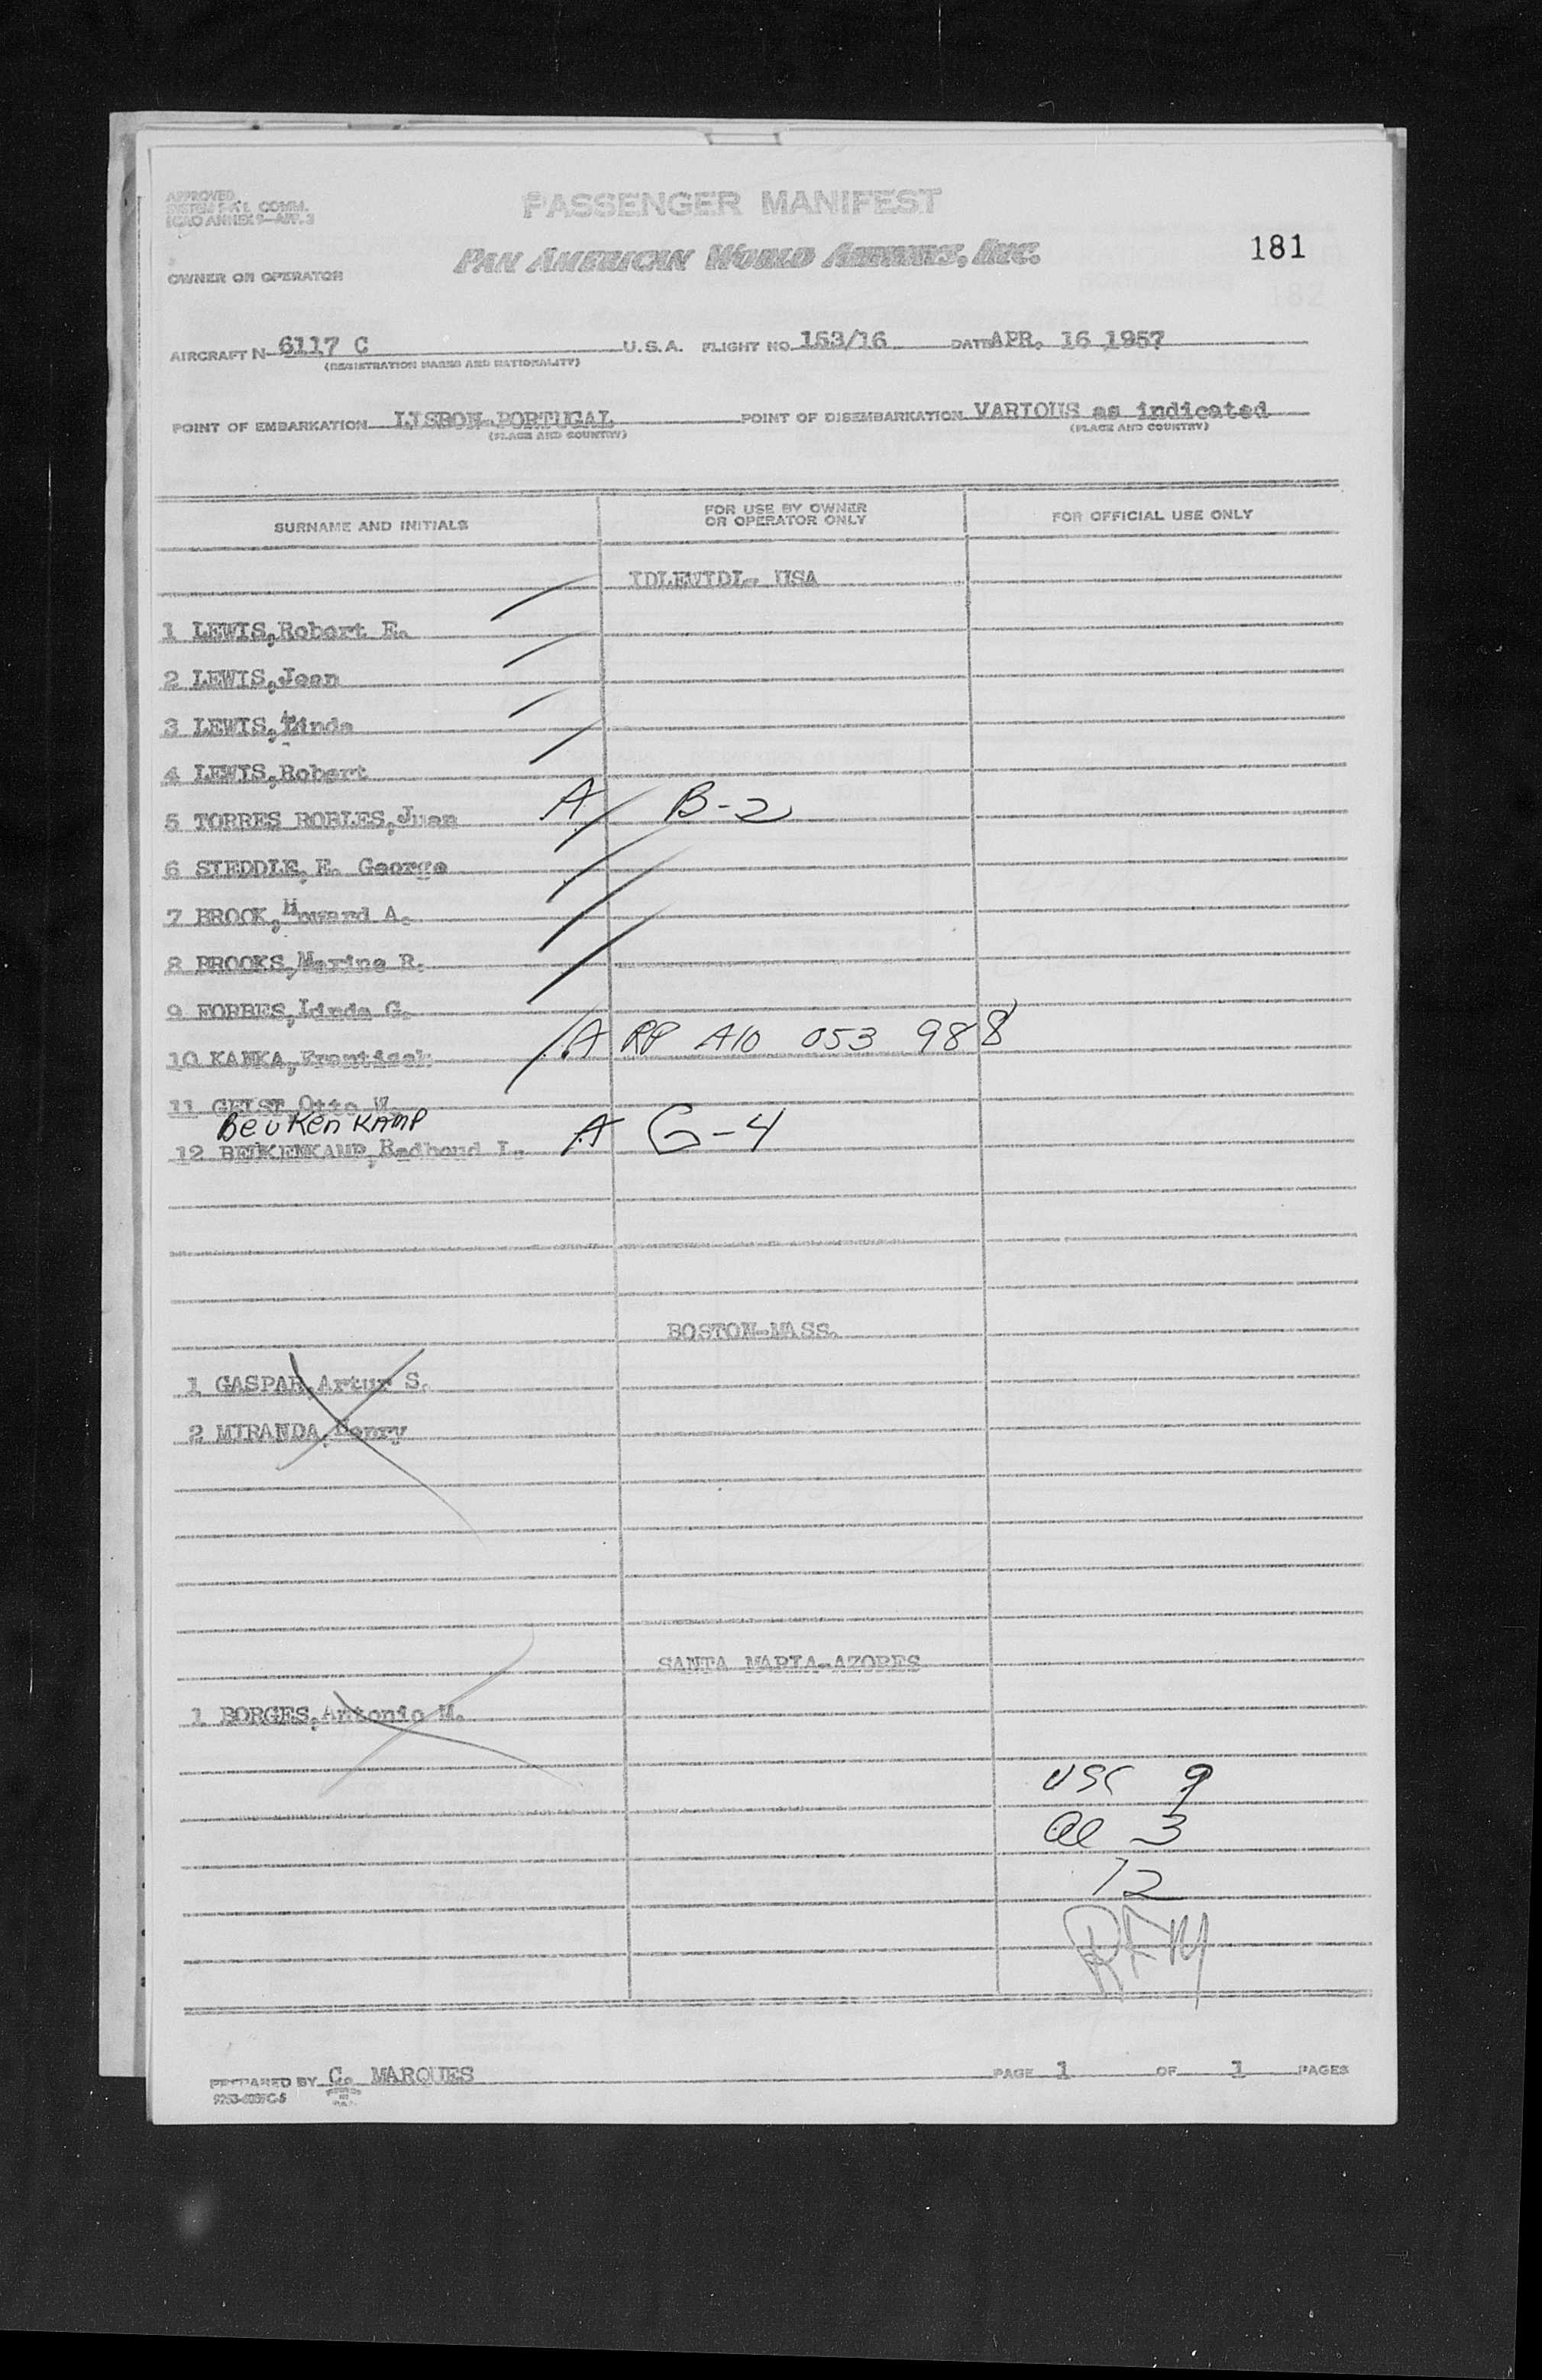 APPROVED
SYSTEM F.A.L. COMM.
ICAO ANNEX 9—APP. 3
PASSENGER MANIFEST
PAN AMERICAN WORLD AIRWAYS, INC.
181
OWNER OR OPERATOR
AIRCRAFT N 6117 C U.S.A. FLIGHT NO. 153/16 DATE APR. 16 1957
(REGISTRATION MARKS AND NATIONALITY)
POINT OF EMBARKATION LISBON-PORTUGAL POINT OF DISEMBARKATION VARIOUS as indicated
(PLACE AND COUNTRY) (PLACE AND COUNTRY)
SURNAME AND INITIALS FOR USE BY OWNER OR OPERATOR ONLY FOR OFFICIAL USE ONLY
IDLEWIDL- USA
1 LEWIS,Robert E.
2 LEWIS,Jean
3 LEWIS,Linda
4 LEWIS,Robert
5 TORRES ROBLES,Juan A B-2
6 STEDDLE,E. George
7 BROOK,Howard A.
8 BROOKS,Marine R.
9 FORBES,Linda G.
10 KANKA,Frantisek A RP A10 053 988
11 GEIST,Otto W.
BeuKenKAMP
12 BEUKENKAMP,Radboud L. A G-4
BOSTON-MASS.
1 GASPAR,Artur S.
2 MIRANDA,Henry
SANTA MARIA-AZORES
1 BORGES,Antonio M.
USC 9
al 3
12
PREPARED BY C. MARQUES PAGE 1 OF 1 PAGES